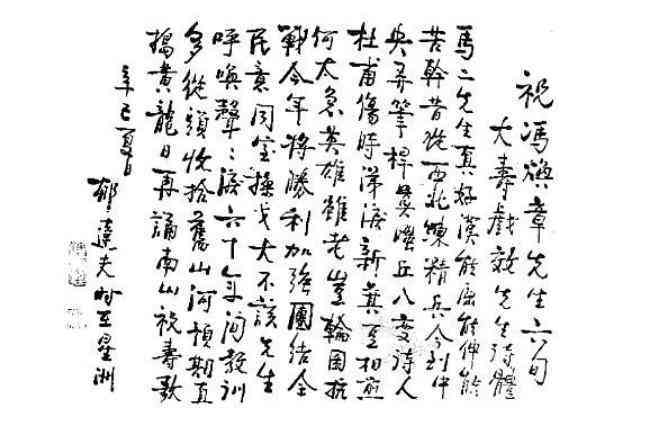 祝馮煥章先生六旬
大壽戲效先生詩體
馬二先生真好漢能屈能伸能
苦幹昔從西北練精兵今到中
央弄筆桿異哉丘八变詩人
杜甫傷時涕淚新萁豆相煎
何太急英雄雖老豈輪囷抗
戰今年將勝利加強團結全
民意同室操戈大不該先生
呼喚聲〻淚六十年间教訓
多從頭收拾舊山河預期直
搗黄龍日再誦南山祝壽歌
辛巳夏日
郁達夫时在星洲